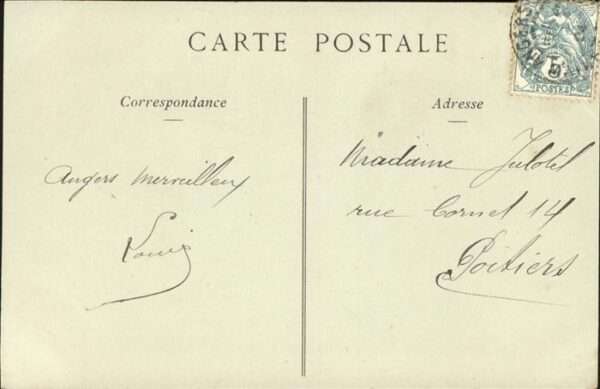 CARTE POSTALE
Correspondance
Angers merveilleux
Louis
Adresse
Madame Julotel
rue Cornet 14
Poitiers
5
POSTES